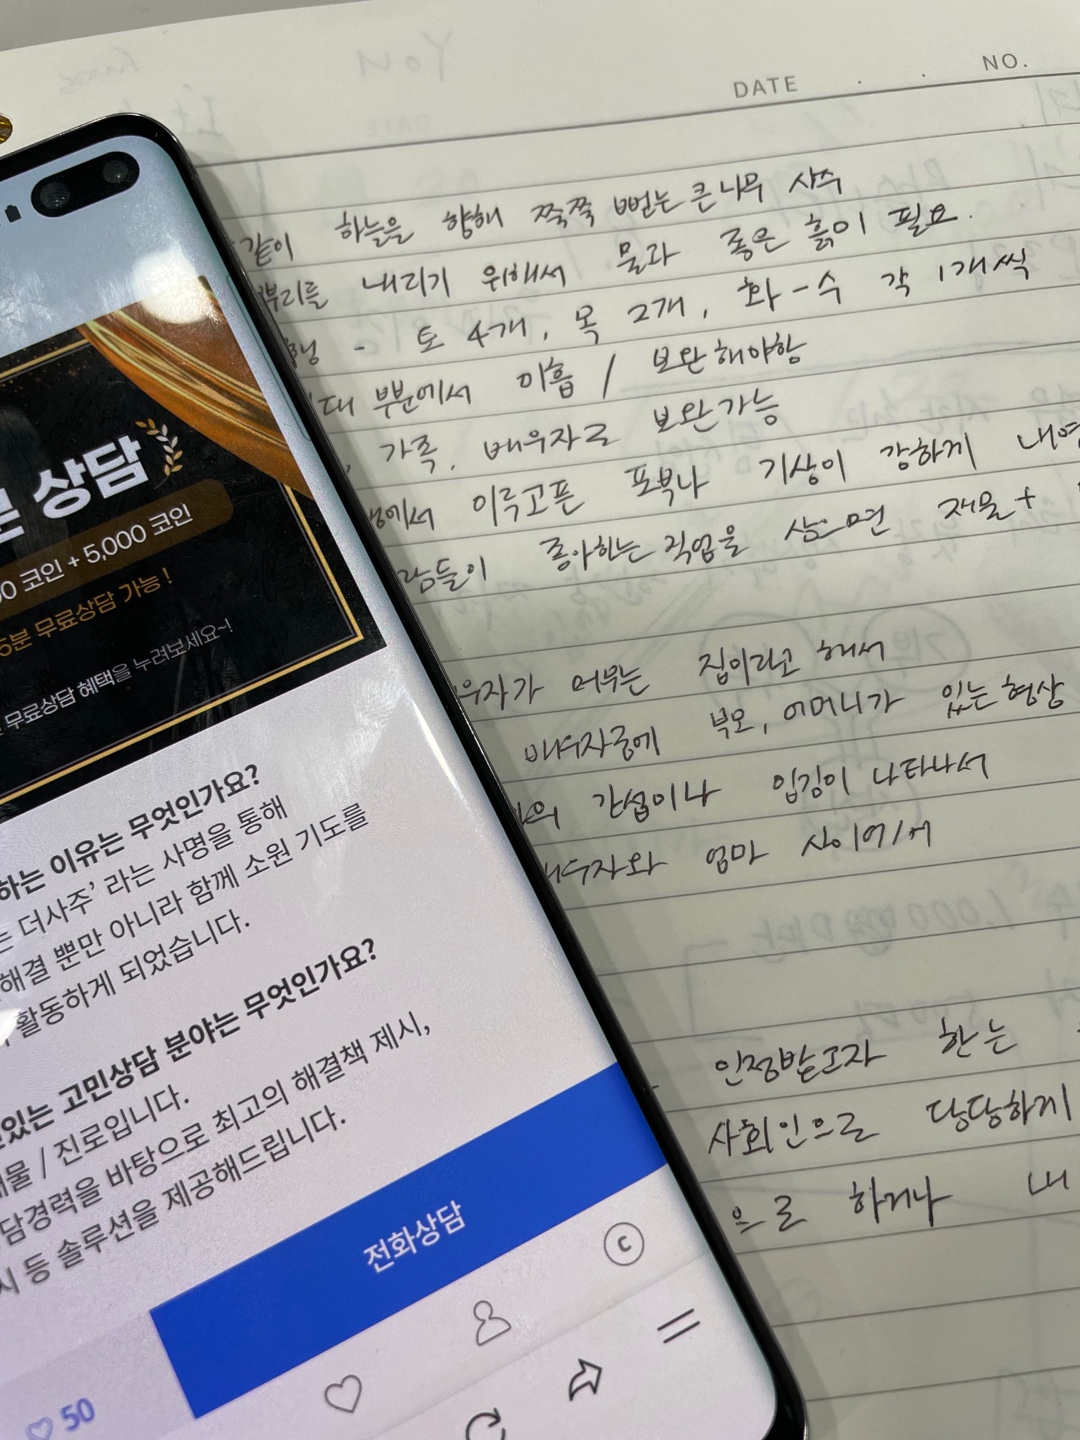 DATE . . NO.
같이 하늘을 향해 쭉쭉 뻗는 큰 나무 사주
뿌리를 내리기 위해서 물과 좋은 흙이 필요.
- 토 4개, 목 2개, 화-수 각 1개씩
부분에서 미흡 / 보완해야함
가족, 배우자로 보완가능
에서 이루고픈 포부나 기상이 강하게 내
람들이 좋아하는 직업을 삼으면 재물+
우자가 머무는 집이라고 해서
배우자궁에 부모, 어머니가 있는 형상
의 간섭이나 입김이 나타나서
배우자와 엄마 사이에서
인정받고자 한는
사회인으로 당당하게
으로 하거나 내
상담
0 코인 + 5,000 코인
5분 무료상담 가능!
무료상담 혜택을 누려보세요~!
하는 이유는 무엇인가요?
는 더사주’ 라는 사명을 통해
해결 뿐만 아니라 함께 소원 기도를
활동하게 되었습니다.
있는 고민상담 분야는 무엇인가요?
물 / 진로입니다.
담경력을 바탕으로 최고의 해결책 제시,
시 등 솔루션을 제공해드립니다.
전화상담
C
50